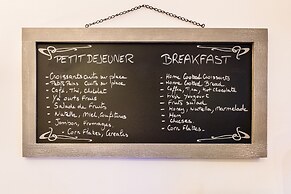 PETIT DEJEUNER
- Croissants cuits sur place
- Petits Pains cuits sur place
- Café, Thé, chocolat
- Yaourts fruits
- Salade de fruits
- Nutella, Miel, Confitures
- Jambon, Fromages
- Corn Flakes, Cereales
BREAKFAST
- Home Cooked Croissants
- Home Cooked Bread
- Coffee, Tea, Hot Chocolate
- Yogourt
- Fruits salad
- Honey, Nutella, Marmelade
- Ham
- Cheeses
- Corn Flakes